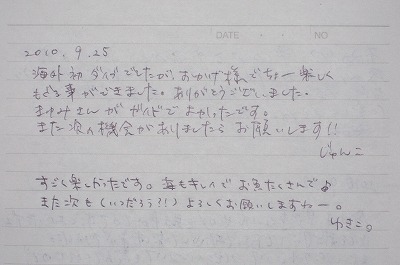 DATE ・ ・ NO
2010. 9. 25
海外初ダイブでしたが、おかげ様でちょー楽しく
もぐる事ができました。ありがとうございました。
まゆみさんがガイドでよかったです。
また次の機会がありましたらお願いします!!
じゅんこ
すごく楽しかったです。海もキレイでお魚たくさんでょ
また次も(いつだろう?!)よろしくお願いしますねー。
ゆきこ。